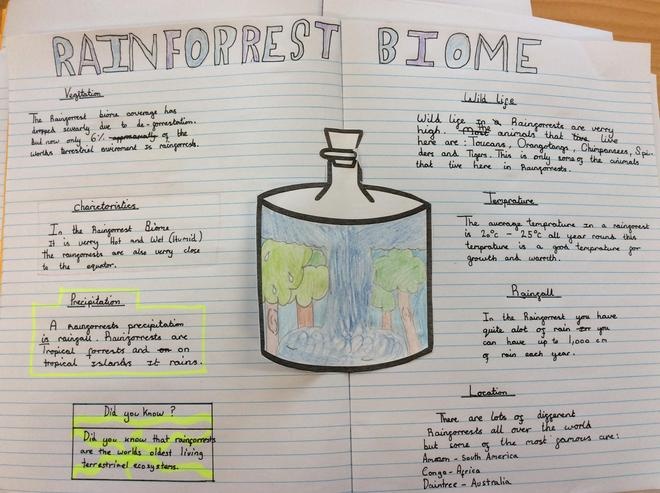 RAINFORREST BIOME
Vegitation
The Rainforrest biome coverage has
dropped sevearly due to de-forrestation.
but now only 6% of the
worlds terrestrial enviroment is rainforrests.
Charictoristics
In the Rainforrest Biome
It is verry Hot and Wet (Humid)
The rainforrests are also verry close
to the equator.
Precipitation
A Rainforrests precipitation
is rainfall. Rainforrests are
Tropical forrests and on
tropical Islands It rains.
Did you Know ?
Did you know that rainforrests
are the worlds oldest living
terrestrinel ecosystems.
Wild life
Wild life in Rainforrests are verry
high. the animals that live
here are : Toucans, Orangotangs, Chimpaneees, Spi-
ders and Tigers. This is only some of the animals
that live here in Rainforrests.
Temprature
The average temprature in a rainforest
is 20°c - 25°c all year round this
temprature is a good temprature for
growth and warmth.
Rainfall
In the Rainforrest you have
quite alot of rain you
can have up to 1,000 cm
of rain each year.
Location
There are lots of different
Rainforrests all over the world
but some of the most famous are:
Amazon - South America
Congo - Africa
Daintree - Australia